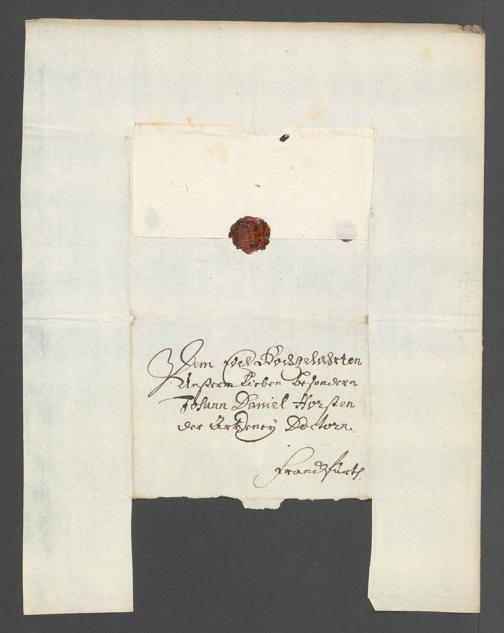 Dem Edel Hochgelahrten
Unserm Lieben besondern
Johann Daniel Horsten
der Artzeney Doctorn.
Franckfurth